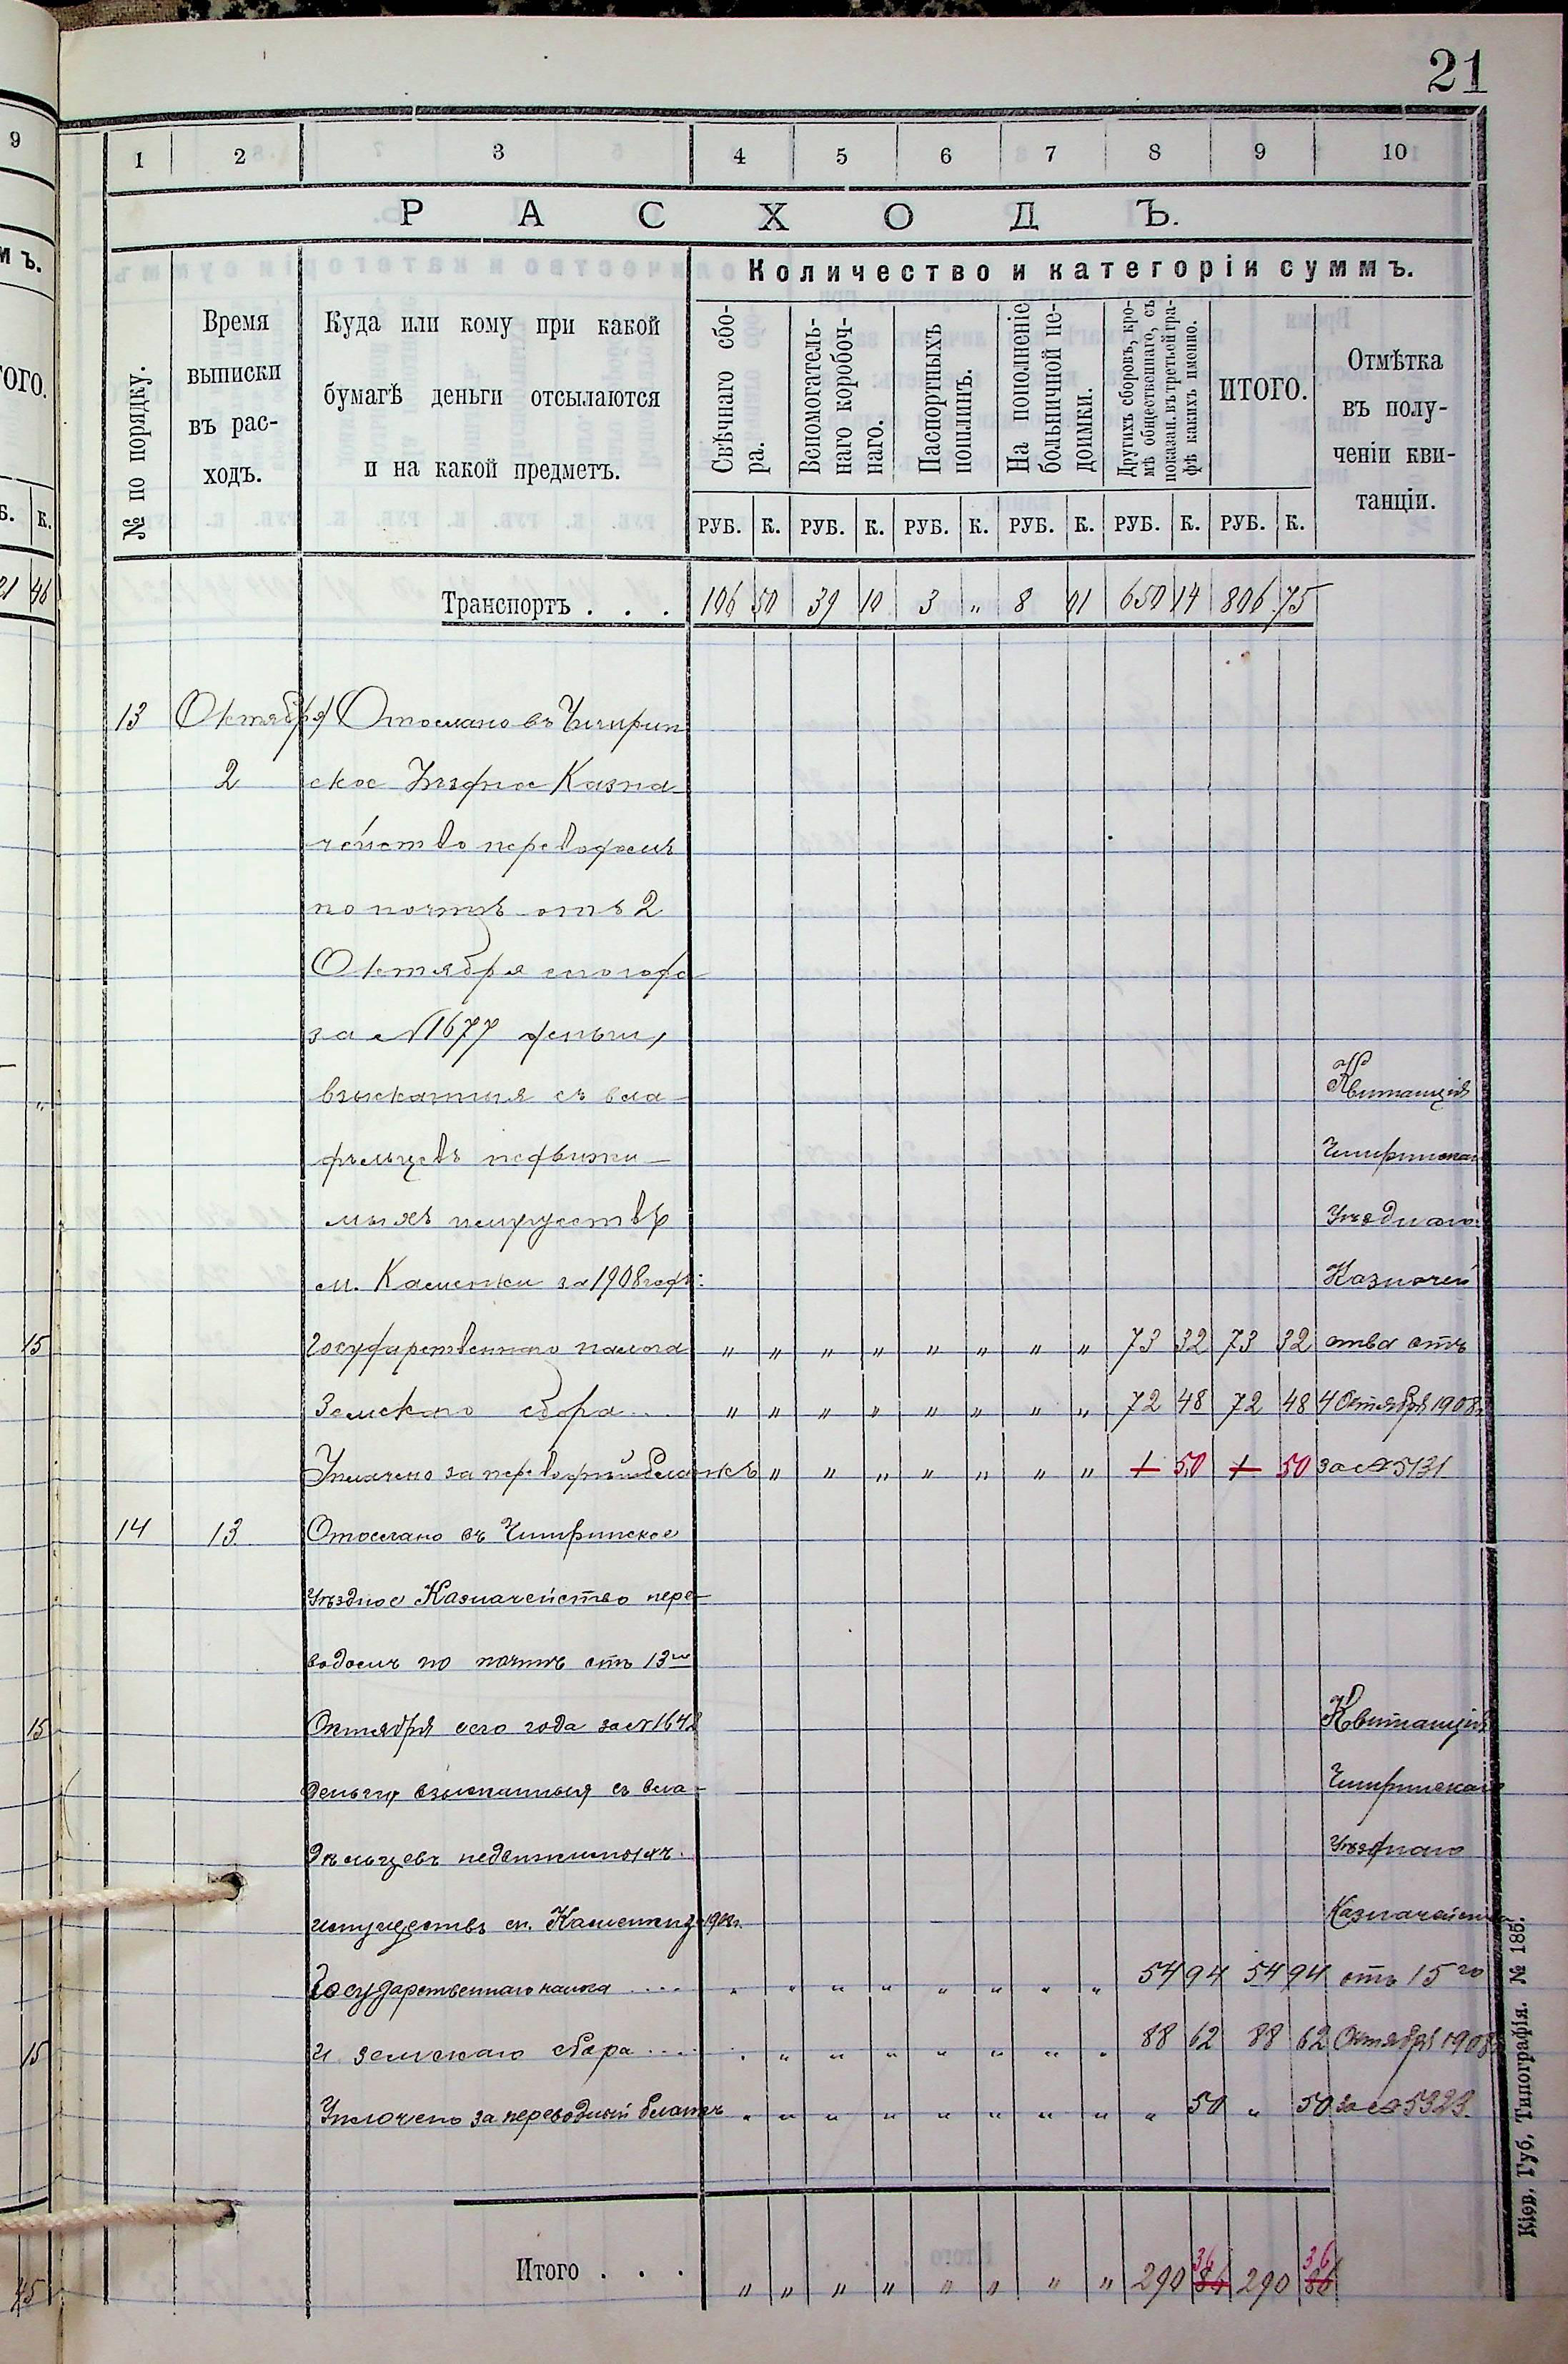 21
9
1 2 3 4 5 6 7 8 9 10
РАСХОДЪ.
Количество и категоріи суммъ.
№ по порядку.
Время
выписки
въ рас-
ходъ.
Куда или кому при какой
бумагѣ деньги отсылаются
и на какой предметъ.
Свѣчнаго сбо-
ра.
Вспомогатель-
наго коробоч-
наго.
Паспортныхъ
пошлинъ.
На пополненіе
больничной не-
доимки.
Другихъ сборовъ, кро-
мѣ общественнаго, съ
показан. въ третьей гра-
фѣ какихъ именно.
ИТОГО.
Отмѣтка
въ полу-
ченіи кви-
танціи.
РУБ. К. РУБ. К. РУБ. К. РУБ. К. РУБ. К. РУБ. К.
Транспортъ . . . 106 50 39 10 3 „ 8 01 650 14 806 75
13 Октября Отослано въ Чигирин
2 ское Уѣздное Казна-
чейство переводомъ
по почтѣ отъ 2
Октября сего года
за №1677 деньги,
взысканныя съ вла-
дѣльцевъ недвижи-
мыхъ имуществъ
м. Каменки за 1908 годъ:
Квитанція
Чигиринскаго
Уѣзднаго
Казначей
государственнаго налога „ „ „ „ „ „ „ „ 73 32 73 32 ства отъ
Земскаго сбора... „ „ „ „ „ „ „ „ 72 48 72 48 4 Октября 1908г.
Уплачено за переводный бланкъ „ „ „ „ „ „ „ 1 50 1 50 за №5131
14 13. Отослано въ Чигиринское
Уѣздное Казначейство пере-
водомъ по почтѣ отъ 13го
Октября сего года за №1642
деньги, взысканныя съ вла-
дѣльцевъ недвижимыхъ
имуществъ м. Каменки за 1908г.
Квитанція
Чигиринскаго
Уѣзднаго
Казначейства
Государственнаго налога .... „ „ „ „ „ „ „ „ 54 94 54 94 отъ 15го
и земскаго сбора .... „ „ „ „ „ „ „ „ 88 62 88 62 Октября 1908г.
Уплочено за переводный бланкъ „ „ „ „ „ „ „ „ „ 50 „ 50 за №5323.
36 36
Итого . . . „ „ „ „ „ „ „ „ 290 86 290 86
Кіев. Губ. Типографія. № 185.